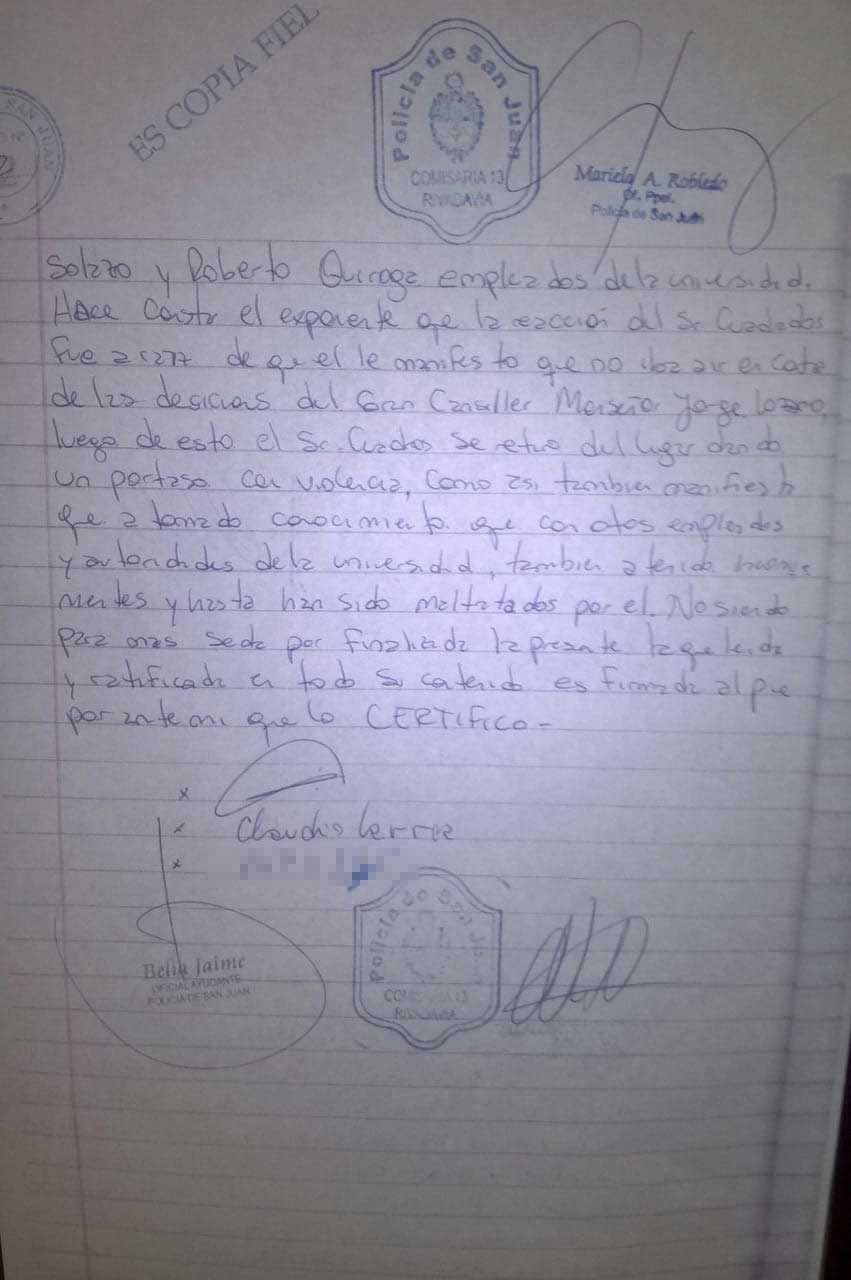 ES COPIA FIEL
SAN JUAN
Policia de San Juan
COMISARIA 13
RIVADAVIA
Mariela A. Robledo
Of. Ppal.
Policia de San Juan
Solazo y Roberto Quiroga empleados de la universidad.
Hace Constar el exponente que la reacción del Sr
fue a raiz de que el le manifesto que no iba a ir en
de las del Gran Canseller Monseñor Jorge Lozano,
luego de esto el Sr. se retiro del lugar dando
un portaso con violencia, Como asi tambien manifiesta
que a tomado conocimiento que con otros empleados
y autoridades de la universidad, tambien a tenido
y hasta han sido maltratados por el. No siendo
para mas se da por finalizada la presente la que leida
y ratificada en todo su contenido es firmada al pie
por ante mi que lo CERTIFICO-
x
x Claudio
x
Policia de San
COMISARIA 13
RIVADAVIA
Belén Jaime
OFICIAL AYUDANTE
POLICIA DE SAN JUAN